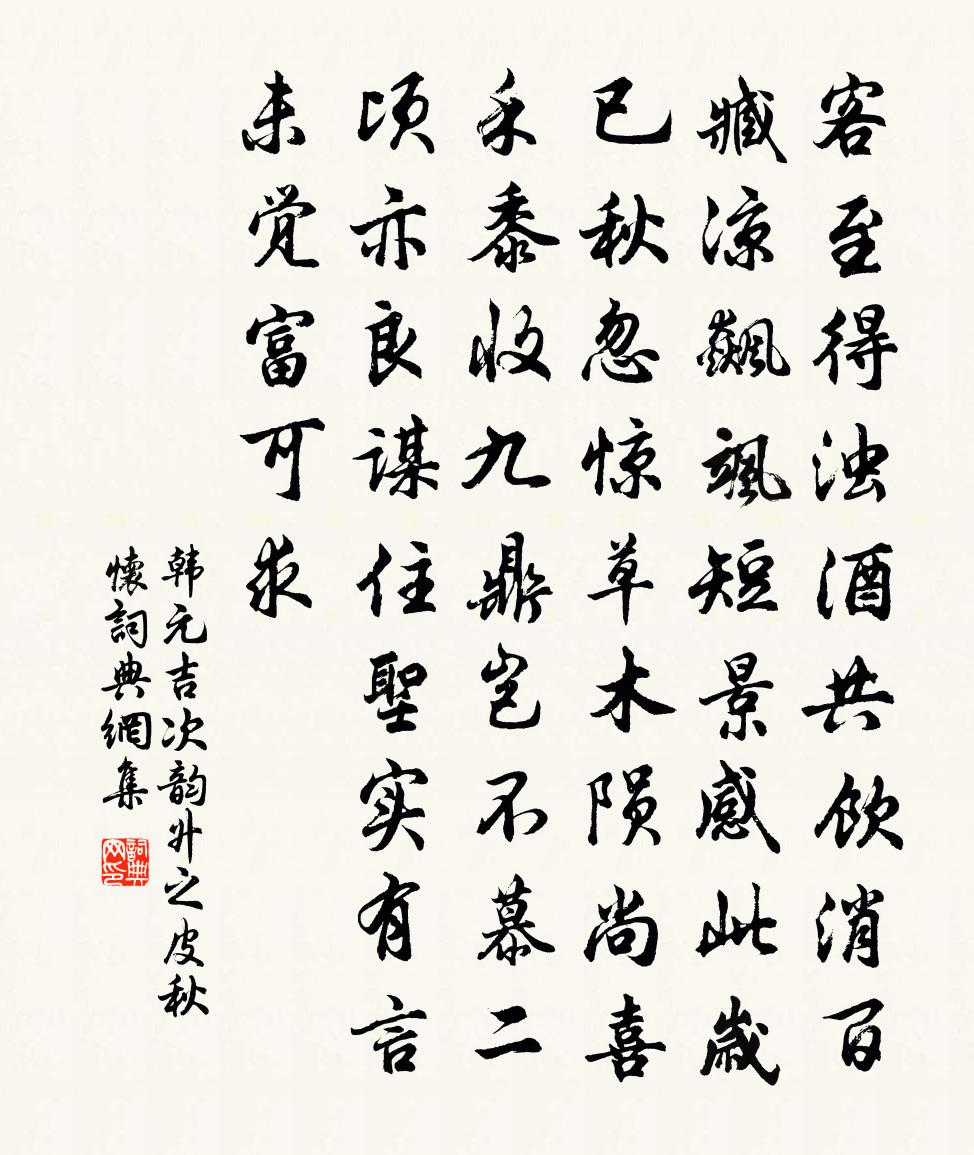 客至得浊酒共饮消百
臧凉飆颯短景感此歲
已秋忽惊草木陨尚喜
禾黍收九鼎岂不慕二
顷亦良谋住聖实有言
未觉富可求
韩元吉次韵升之皮秋
懷詞典網集
詞典网印